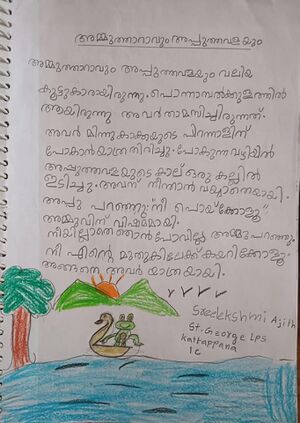 അമ്മുത്താറാവും അപ്പുത്തവളയും
അമ്മുത്താറാവും അപ്പുത്തവളയും വലിയ
കൂട്ടുകാരായിരുന്നു. പൊന്നാമ്പൽക്കുളത്തിൽ
ആയിരുന്നു അവർ താമസിച്ചിരുന്നത്.
അവർ മിന്നുകാക്കയുടെ പിറന്നാളിന്
പോകാൻ യാത്ര തിരിച്ചു. പോകുന്ന വഴിയിൽ
അപ്പുത്തവളയുടെ കാല് ഒരു കല്ലിൽ
ഇടിച്ചു. അവന് നീന്താൻ വയ്യാതെയായി.
അപ്പു പറഞ്ഞു: "നീ പൊയ്ക്കോളൂ"
അമ്മുവിന് വിഷമമായി.
നീയില്ലാതെ ഞാൻ പോവില്ല അമ്മു പറഞ്ഞു.
നീ എന്റെ മുതുകിലേക്ക് കയറിക്കോളൂ"
അങ്ങനെ അവർ യാത്രയായി.
Sreelekshmi Ajith
St. George Lps
Kattappana
1C